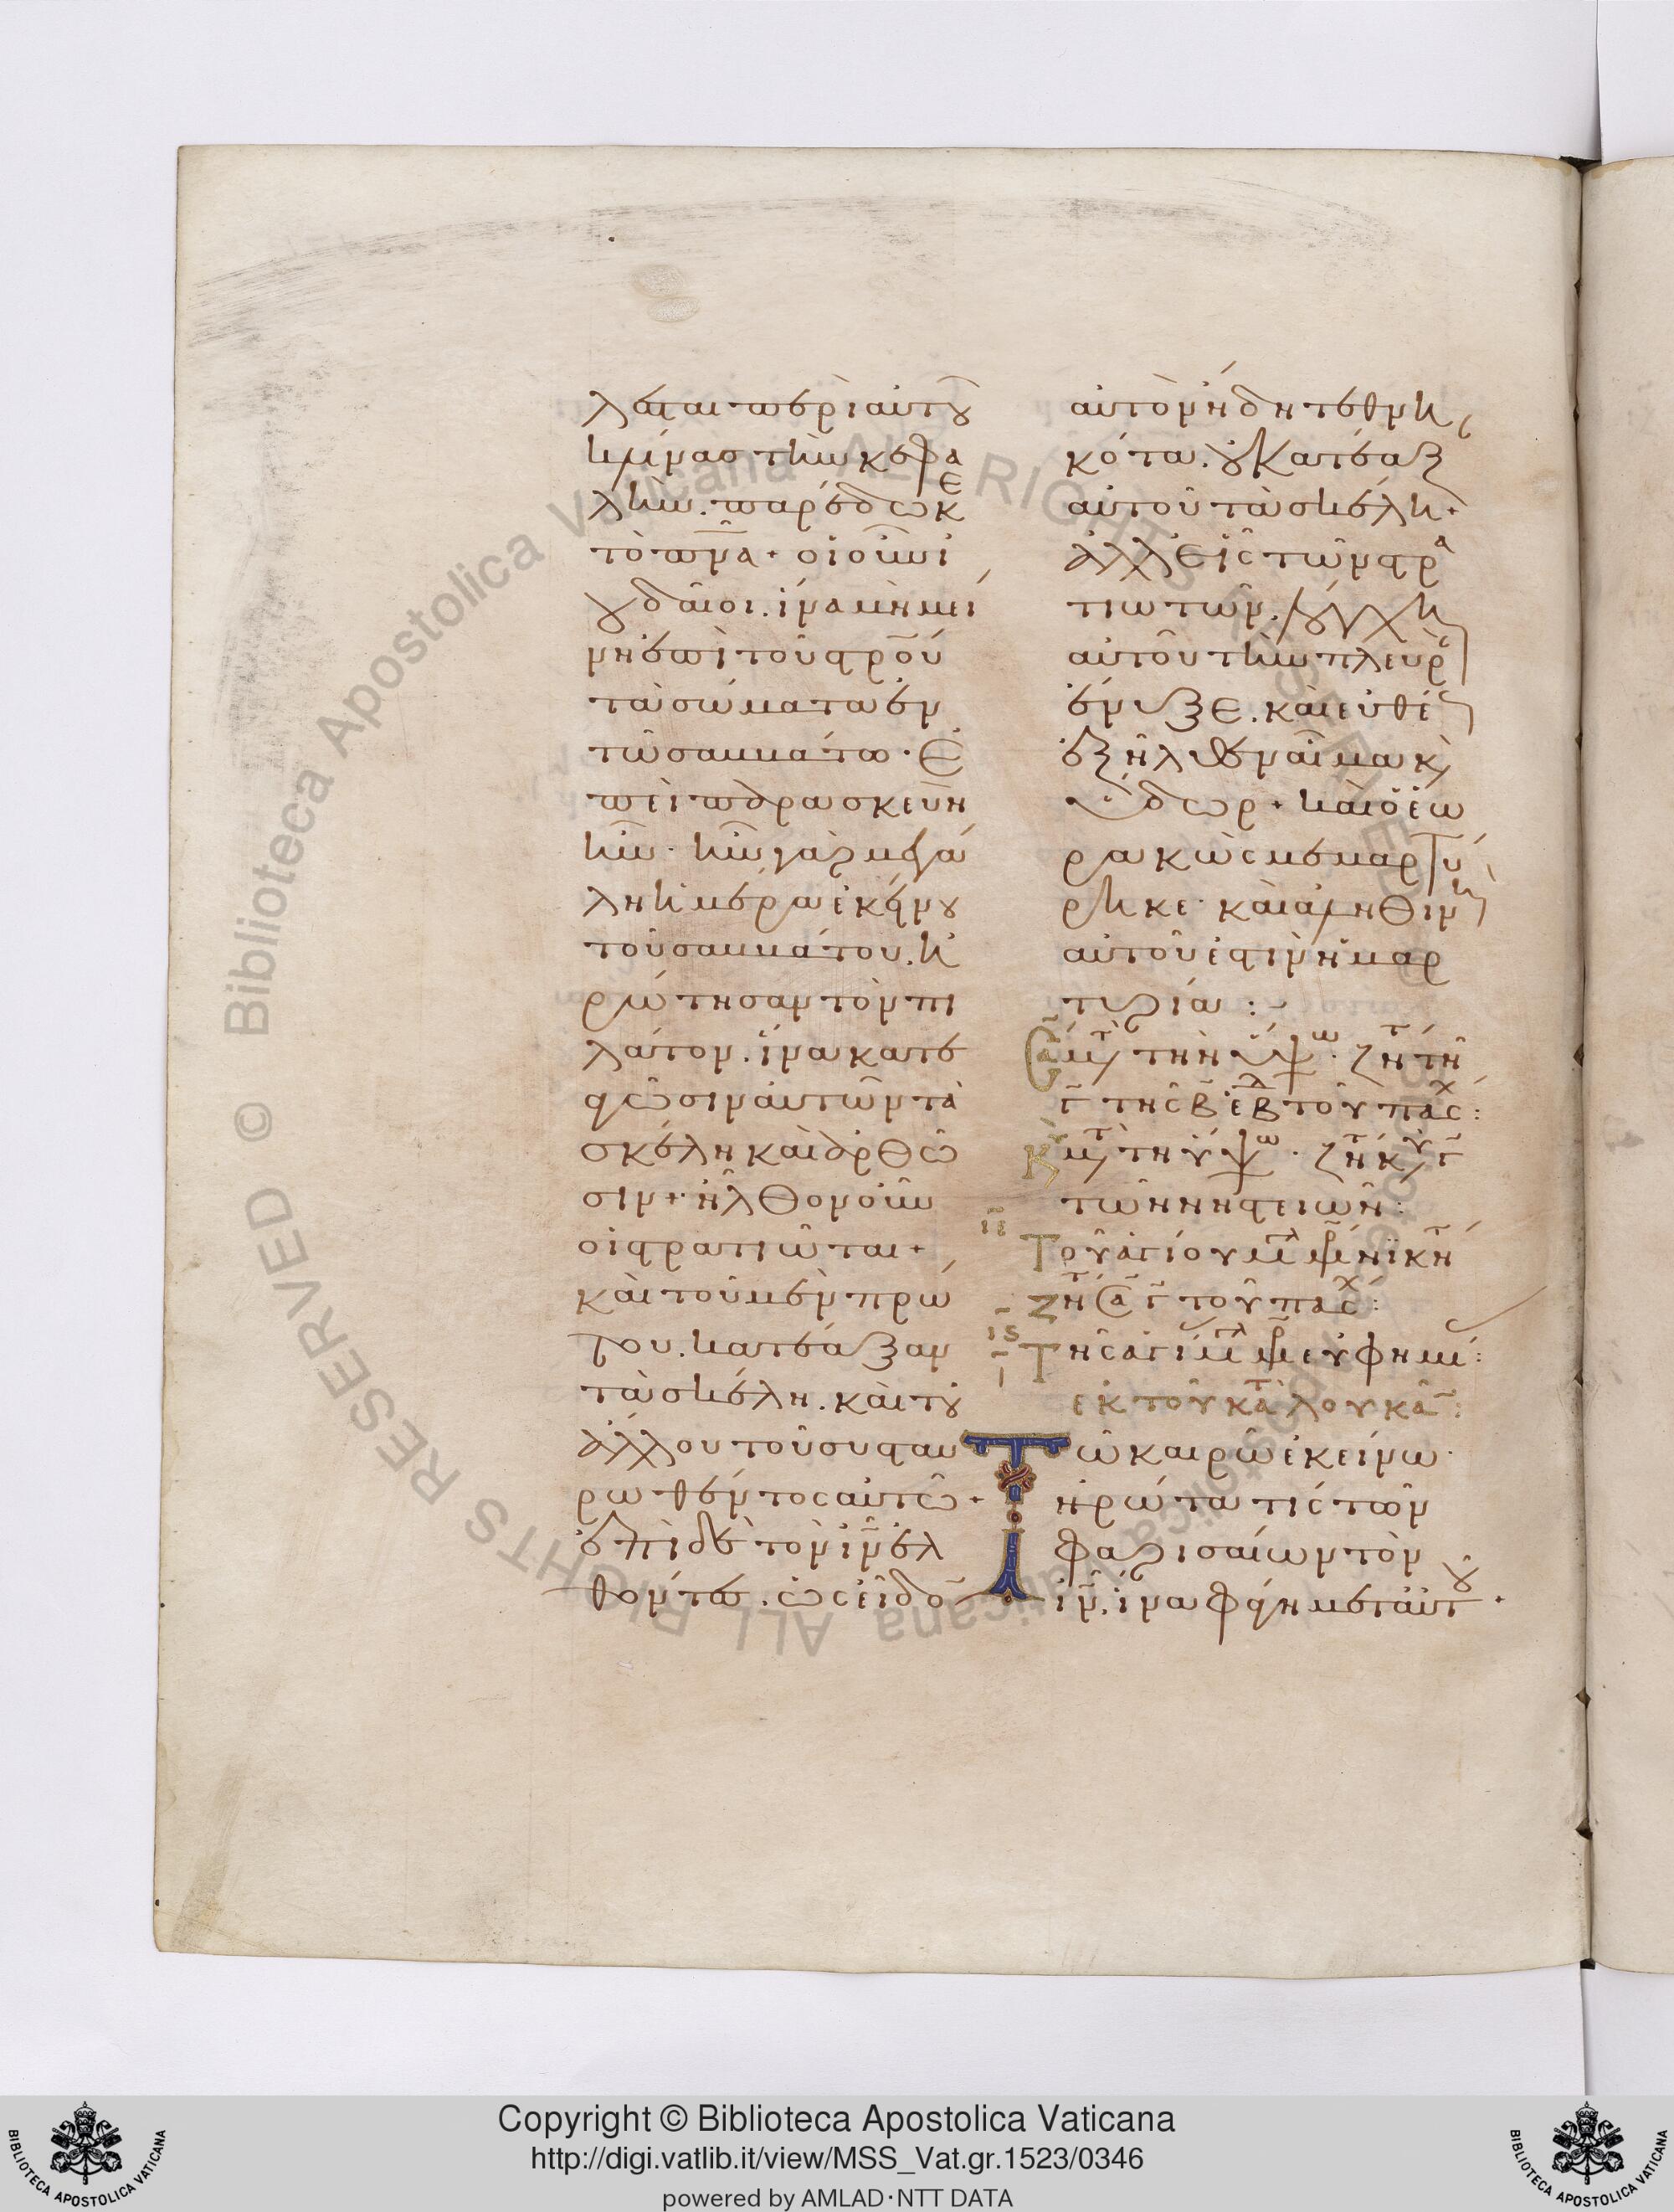 λεσαι περὶ αὐτοῦ
κλίνας τὴν κεφα
λὴν. παρέδωκε
τὸ πν̅α̅ + οἱ οὖν ἰ
ουδαῖοι. ἵνα μὴ μεί
νη ἐπὶ τοῦ στρο̅ύ
τὰ σώματα ἐν
τῶ σαββάτω. ἐ
πεὶ παρασκευὴ
ἦν. ἦν γὰρ μεγά
λη ἡμέρα ἐκείνου
τοῦ σαββάτου. ἠ
ρώτησαν τὸν πι
λάτον. ἵνα κατε
αγῶσιν αὐτῶν τὰ
σκέλη καὶ ἀρθῶ
σιν + ἦλθον οὖν
οἱ στρατιῶται +
καὶ τοῦ μὲν πρώ
του. κατέαξαν
τὰ σκέλη. καὶ τοῦ
ἄλλου τοῦ συσταυ
ρωθέντος αὐτῶ +
ἐπὶ δὲ τὸν ι̅ν̅ ἐλ
θόντες. ὡς εἶδον
αὐτὸν ἤδη τεθνη
κότα. οὐ κατέαξ
αὐτοῦ τὰ σκέλη +
ἀλλ εἷς τῶν στρα
τιωτῶν. λόγχη
αὐτοῦ τὴν πλευρ
ἔνυξε. καὶ εὐθέ
ἐξῆλθεν αἷμα κ
ὕδωρ + καὶ ὁ ἑω
ρακὼς μεμαρτύ
ρηκε. καὶ ἀληθιν
αὐτοῦ ἐστιν ἡ μαρ
τυρία :
Σα μτ τὴν ὕψω. ζητ
τῆς β εβ τοῦ πασχ :
Κυ μτ τὴν ὕψω. ζητ κυ γ
τῶν νηστειῶν :
ιε Τοῦ ἁγίου μ μρ νικητ
ζητ σα γ τοῦ πασχ :
ις Τῆς ἁγι μ μρ εὐφημι :
ἐκ τοῦ κατὰ λουκᾶ :
Τῶ καιρῶ ἐκείνω.
ἠρώτα τίς τῶν
φαρισαίων τὸν
ι̅ν̅. ἵνα φάγη μετ αὐτοῦ.
Copyright © Biblioteca Apostolica Vaticana
http://digi.vatlib.it/view/MSS_Vat.gr.1523/0346
powered by AMLAD·NTT DATA
BIBLIOTECA APOSTOLICA VATICANA
BIBLIOTECA APOSTOLICA VATICANA
Biblioteca Apostolica Vaticana ALL RIGHTS RESERVED ©